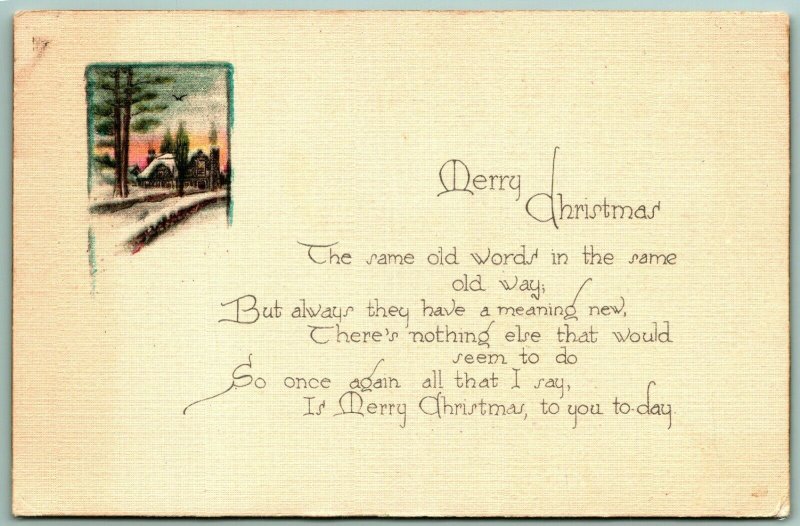 Merry
Christmas
The same old words in the same
old way;
But always they have a meaning new,
There's nothing else that would
seem to do
So once again all that I say,
Is Merry Christmas, to you to-day.